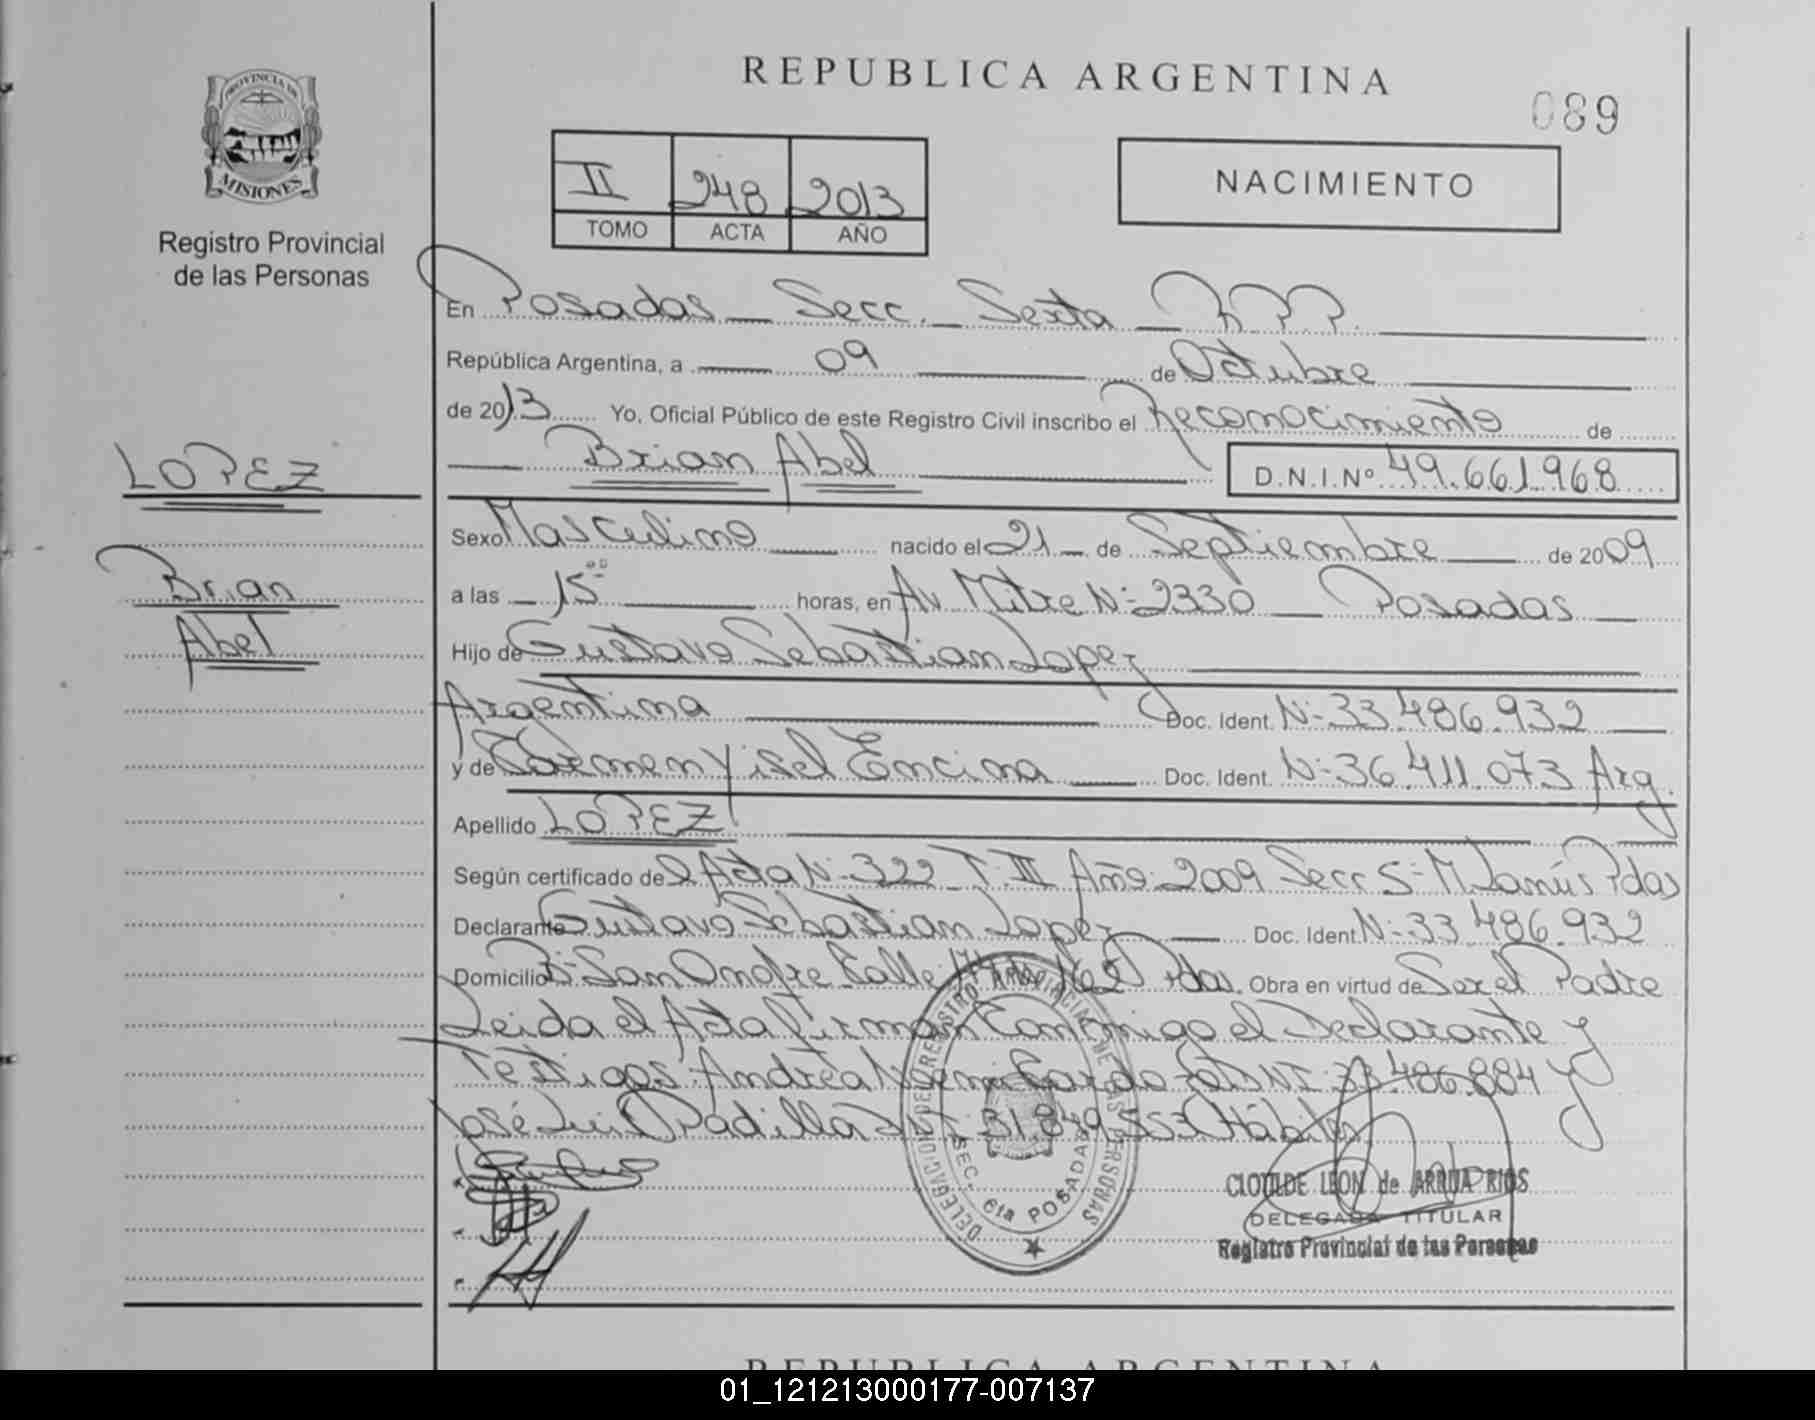 REPUBLICA ARGENTINA
089
PROVINCIA DE
MISIONES
Registro Provincial
de las Personas
II 248 2013
TOMO ACTA AÑO
NACIMIENTO
En Posadas Secc. Sexta R.P.P.
República Argentina, a 09 de Octubre
de 2013 Yo, Oficial Público de este Registro Civil inscribo el Reconocimiento de
Brian Abel D.N.I.Nº 49.661.968
LOPEZ
Brian
Abel
Sexo Masculino nacido el 21 de Septiembre de 2009
a las 15 00 horas, en Av. Mitre Nº 2330 Posadas
Hijo de Gustavo Sebastian Lopez
Argentina Doc. Ident. Nº 33.486.932
y de Carmen Yisel Encina Doc. Ident. Nº 36.411.073 Arg.
Apellido LOPEZ
Según certificado de l Acta Nº 322 T. III Año 2009 Secc 5º M. Lanús Pdas
Declarante Gustavo Sebastian Lopez Doc. Ident. Nº 33.486.932
Domicilio Bº San Onofre Calle 162 Pdas. Obra en virtud de Ser el Padre
Leida el Acta Firman Conmigo el Declarante y
Testigos Andrea Noemi DNI 33.486.884 y
José Luis Padilla DNI 31.849.553 Hábiles
DELEGACION DEL REGISTRO PROVINCIAL DE LAS PERSONAS
SEC. 6ta POSADAS
CLOTILDE LEON de ARRUA RIOS
DELEGADA TITULAR
Registro Provincial de las Personas
REPUBLICA ARGENTINA
01_121213000177-007137